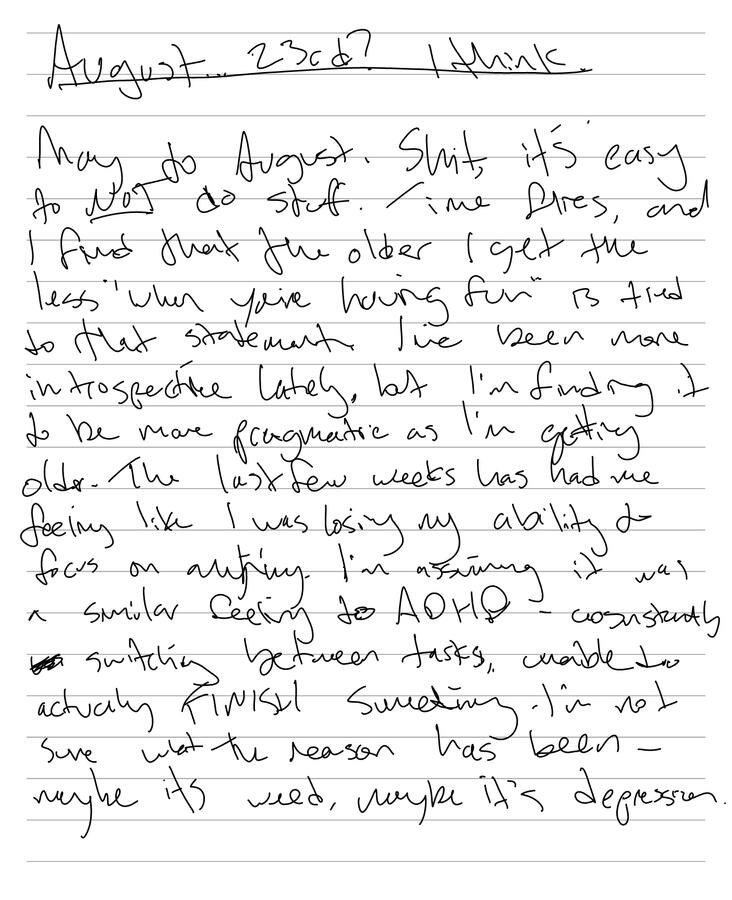 August... 23rd? I think.
May to August. Shit, it's easy
to NOT do stuff. Time flies, and
I find that the older I get the
less "when you're having fun" is tied
to that statement. I've been more
introspective lately, but I'm finding it
to be more pragmatic as I'm getting
older. The last few weeks has had me
feeling like I was losing my ability to
focus on anything. I'm assuming it was
a similar feeling to ADHD - constantly
switching between tasks, unable to
actually FINISH something. I'm not
sure what the reason has been -
maybe it's weed, maybe it's depression.